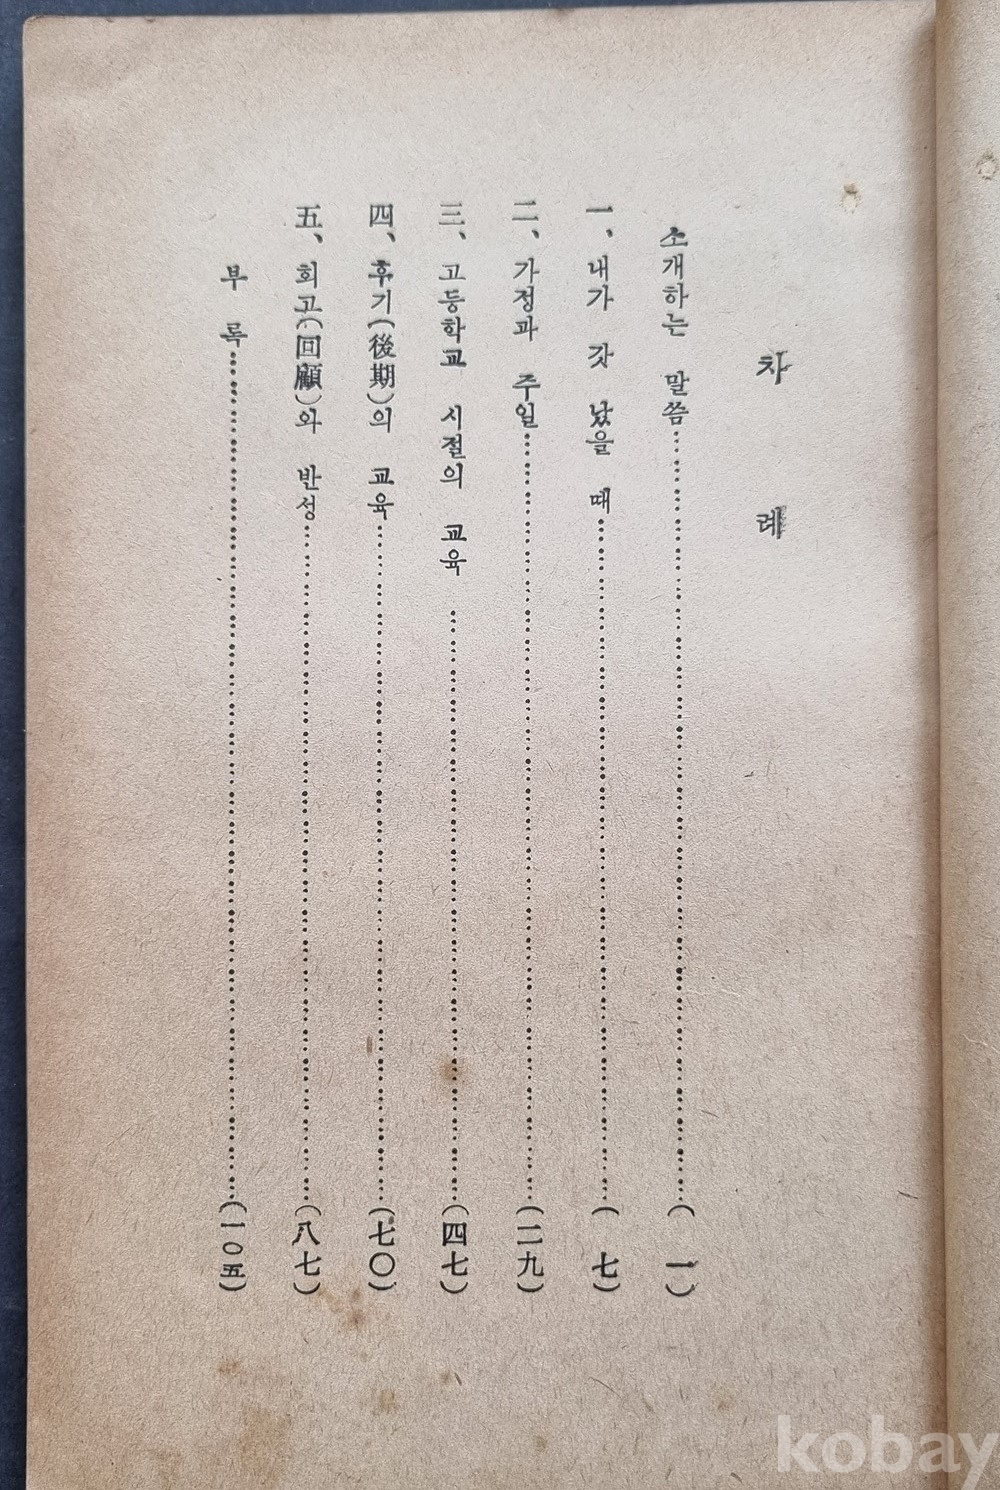 차 례
소개하는 말씀……(一)
一、내가 갓 났을 때……(七)
二、가정과 주일……(二九)
三、고등학교 시절의 교육……(四七)
四、후기(後期)의 교육……(七〇)
五、회고(回顧)와 반성……(八七)
부 록……(一〇五)
kobay